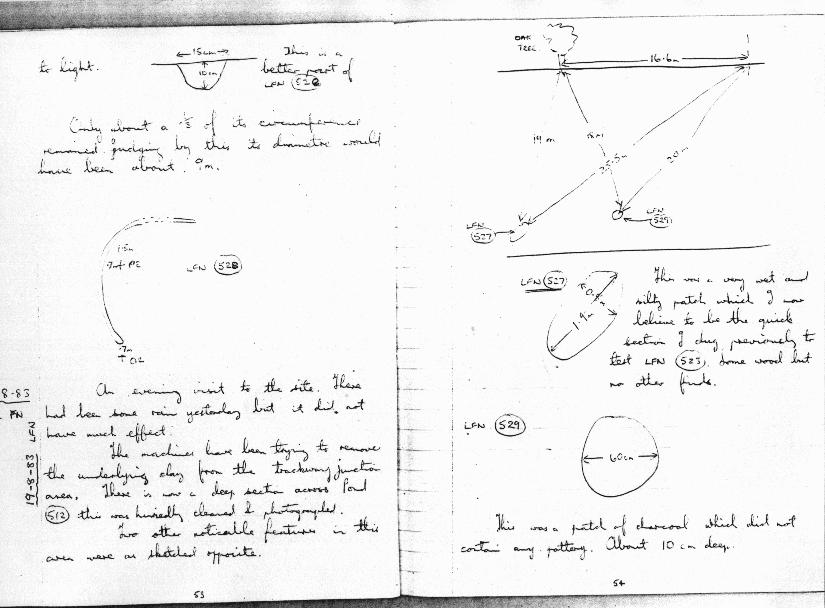 to light.
15cm
10cm
This is a
better part of
LFN 528
Only about a 1/3 of its circumference
remained judging by this its diameter would
have been about .9m.
1.5m
PE
LFN 528
.7m
+ O2
8-83
FN
19-8-83 LFN
An evening visit to the site. There
had been some rain yesterday but it did not
have much effect.
The machines have been trying to remove
the underlying clay from the trackway junction
area. There is now a deep section across Pond
512 this was hurriedly cleaned & photographed.
Two other noticable features in this
area were as sketched opposite.
53
OAK
TREE
16.6m
19m
25.5m
20m
LFN
527
LFN
529
LFN 527
0.8m
1.9m
This was a very wet and
silty patch which I now
believe to be the quick
section I dug previously to
test LFN 523. Some wood but
no other finds.
LFN 529
60cm
This was a patch of charcoal which did not
contain any pottery. About 10 cm deep.
54